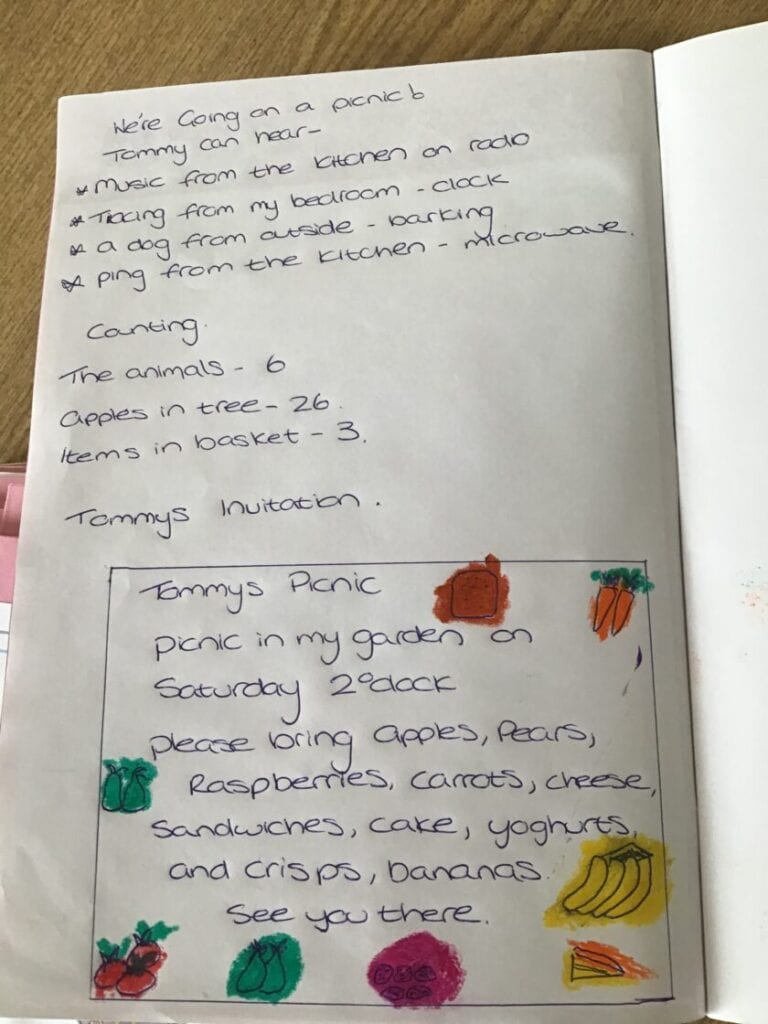 We're Going on a picnic b
Tommy can hear-
* Music from the kitchen on radio
* Ticking from my bedroom - clock
* a dog from outside - barking
* ping from the kitchen - microwave.
Counting.
The animals - 6
apples in tree - 26.
Items in basket - 3.
Tommys Invitation.
Tommys Picnic
picnic in my garden on
Saturday 2o'clock
please bring apples, Pears,
Raspberries, carrots, cheese,
sandwiches, cake, yoghurts,
and crisps, bananas.
See you there.